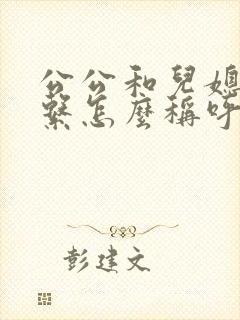 公公和兒媳
繫怎麼稱呼
彭建文